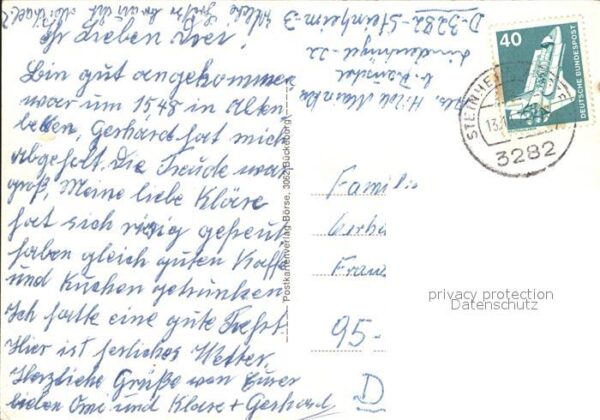 Ihr Lieben drei!
Bin gut angekommen
war um 15,48 in Alten
beken, Gerhard hat mich
abgeholt. Die Freude war
groß, Meine liebe Kläre
hat sich riesig gefreut
haben gleich guten Kaffe
und Kuchen getrunken
Ich hatte eine gute Fahrt.
Hier ist herliches Wetter.
Herzliche Grüße von Eurer
lieben Omi und Kläre + Gerhard
Abs. Hilde
Lindenhügel 22
D-3282-Steinheim-3
Postkartenverlag-Börse, 3062 Bückeburg
40
DEUTSCHE BUNDESPOST
STEINHEI
3282
Famili
Gerha
Franz
95-
D
privacy protection
Datenschutz